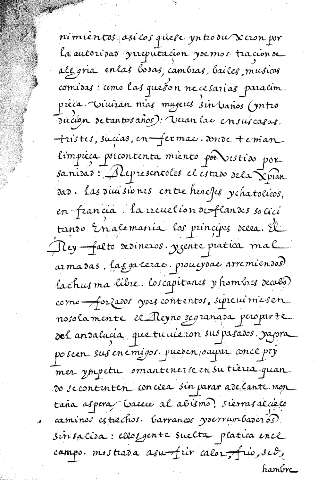 nimientos, asi los que se yntroduxeron por
la autoridad y reputaçion y demostraçion de
alegria en las bodas, zambras, bailes, musicos
comidas: como las que son necesarias para lim
pieça. Viviran mas mugeres sin baños (yntro
duçion de tantos años): Vean las en sus casas
tristes, sucias, enfermas. donde tenian
limpieça por contentamiento por Vestido por
sanidad: Representoles el estado de la Xpian
dad. las divisiones entre hereJes y chatolicos,
en françia. la revelion de flandes solici
tando En alemania los principes della. El
Rey falto de dineros. y gente platica mal
armadas, las galeras. proveydas a rremiendos
la chusma libre. los capitanes y hombres de cabo
como forzados y descontentos, si previniesen
no solamente el Reyno de granada pero parte
del andaluçia que tuvieron sus pasados. y agora
poseen sus enemigos. pueden ocupar con el pri
mer ympetu o mantenerse en su tierra, quan
do se contenten con ella sin pasar adelante. mon
taña aspera, Valles al abismo, sierras al çielo
caminos estrechos. barrancos y derrumbaderos
sin salida: ellos gente suelta platica en el
campo. mostrada a sufrir calor, frio, sed,
hambre